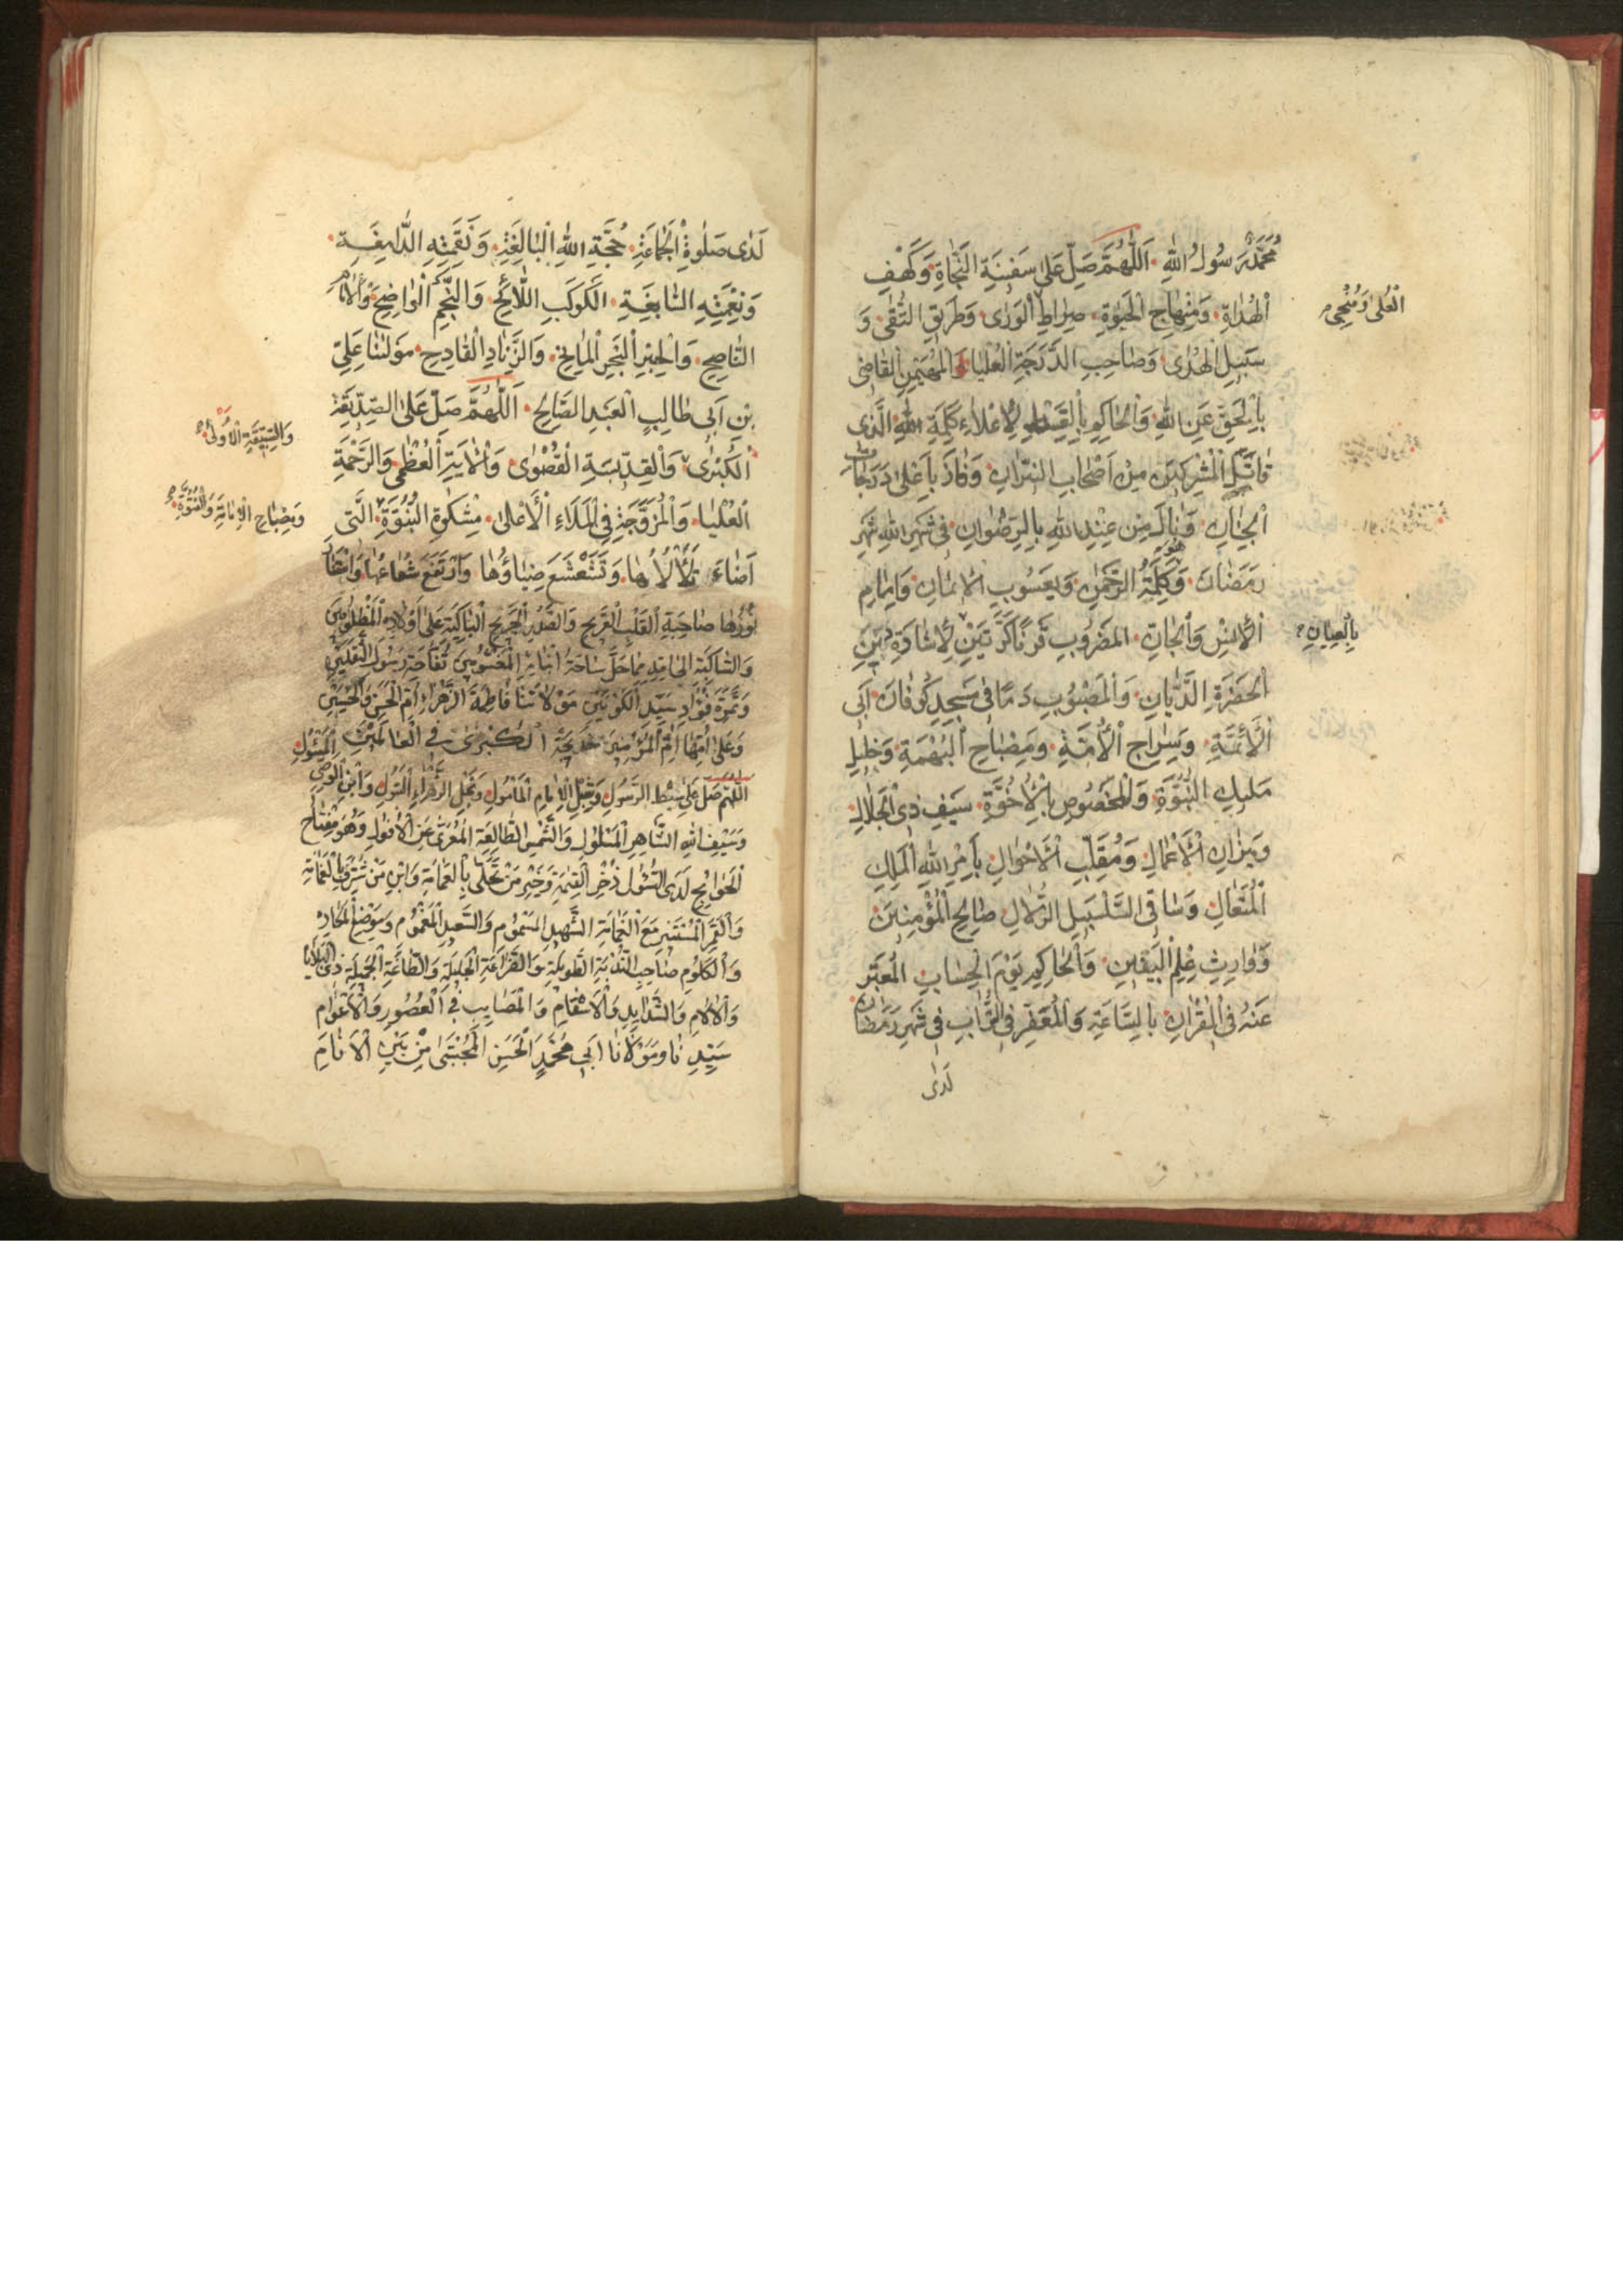 مُحَمَّدٌ رَسُولُ اللهِ اَللّٰهُمَّ صَلِّ عَلىٰ سَفينَةِ النَّجٰاةِ وَكَهْفِ
اَلْهُدٰاةِ وَمِنْهٰاجِ الْحَيٰوةِ صِرٰاطِ الْوَرٰى وَطَريقِ التُّقىٰ وَ
الْعُلىٰ وَمُنْجِى
سَبيلِ الْهُدٰى وَصٰاحِبِ الدَّرَجَةِ الْعُلْيٰا وَالْمُهَيْمِنِ الْقٰاضى
بِالْحَقِّ عَنِ اللهِ وَالْحٰاكِمِ بِالْقِسْطِ لِاِعْلٰاءِ كَلِمَةِ اللهِ الَّذى
قٰاتَلَ الْمُشْرِكينَ مِنْ اَصْحٰابِ النّيرٰانِ وَفٰازَ بِاَعْلىٰ دَرَجٰاتِ
الْجِنٰانِ وَنٰالَ مِنْ عِنْدِ اللهِ بِالرِّضْوٰانِ فى شَهْرِ اللهِ شَهْرِ
رَمَضٰانَ وَكَلِمَةُ الرَّحْمٰنِ وَيَعْسُوبِ الْايمٰانِ وَاِمٰامِ
الْاِنْسِ وَالْجٰانِّ الْمَضْرُوبِ قَرْنًا كَرَّتَيْنِ لِاِشٰادَةِ بَيْنِ
بِالْعِيٰانِ
الْحَضْرَةِ الدَّيّٰانِ وَالْمَصْبُوبِ دَمًا فى مَسْجِدِ كُوفٰانَ اَبى
الْاَئِمَّةِ وَسِرٰاجِ الْاُمَّةِ وَمِصْبٰاحِ الْبُهْمَةِ وَخَليلِ
مَليكِ النُّبُوَّةِ وَالْمَخْصُوصِ بِالْاُخُوَّةِ سَيْفِ ذِى الْجَلٰالِ
وَميزٰانِ الْاَعْمٰالِ وَمُقَلِّبِ الْاَحْوٰالِ بِاَمْرِ اللهِ الْمَلِكِ
الْمُتَعٰالِ وَسٰاقِى السَّلْسَبيلِ الزُّلٰالِ صٰالِحِ الْمُؤْمِنينَ
وَوٰارِثِ عِلْمِ الْيَقينِ وَالْحٰاكِمِ يَوْمَ الْحِسٰابِ الْمُعَبَّرِ
عَنْهُ فِى الْقُرْاٰنِ بِالسّٰاعَةِ وَالْمُعَفَّرِ فِى التُّرٰابِ فى شَهْرِ رَمَضٰانَ
لَدٰى
لَدٰى صَلٰوةِ الْجَمٰاعَةِ حُجَّةِ اللهِ الْبٰالِغَةِ وَنَقِمَتِهِ الدّٰامِغَةِ
وَنِعْمَتِهِ السّٰابِغَةِ الْكَوْكَبِ اللّٰائِحِ وَالنَّجْمِ الْوٰاضِحِ وَالْاِمٰامِ
النّٰاصِحِ وَالْحِبْرِ الْبَحْرِ الْمٰايِحِ وَالزِّنٰادِ الْقٰادِحِ مَوْلٰينٰا عَلِىِّ
بْنِ اَبى طٰالِبٍ الْعَبْدِ الصّٰالِحِ اَللّٰهُمَّ صَلِّ عَلىٰ الصِّدّيقَةِ
الْكُبْرٰى وَالْقِدّيسَةِ الْقُصْوٰى وَالْاٰيَةِ الْعُظْمٰى وَالرَّحْمَةِ
الْعُلْيٰا وَالْمُزَوَّجَةِ فِى الْمَلَاءِ الْاَعْلىٰ مِشْكٰوةِ النُّبُوَّةِ الَّتى
وَمِصْبٰاحِ الْاِمٰامَةِ وَالْفُتُوَّةِ
اَضٰاءَ تَلَأْلُأُهٰا وَتَشَعْشَعَ ضِيٰاؤُهٰا وَارْتَفَعَ شُعٰاعُهٰا وَاسْتَنٰارَ
نُورُهٰا صٰاحِبَةِ الْقَلْبِ الْقَريحِ وَالصَّدْرِ الْجَريحِ الْبٰاكِيَةِ عَلىٰ اَوْلٰادِهِ الْمَظْلُومينَ
وَالشّٰاكِيَةِ اِلىَ اللهِ مِمّٰا حَلَّ سٰاحَةَ اَبْنٰائِهِ تُفّٰاحَةِ رَسُولِ الثَّقَلَيْنِ
وَثَمَرَةِ فُؤٰادِ سَيِّدِ الْكَوْنَيْنِ مَوْلٰاتِنٰا فٰاطِمَةَ الزَّهْرٰاءِ اُمِّ الْحَسَنِ وَالْحُسَيْنِ
وَعَلىٰ اُمِّهٰا اُمِّ الْمُؤْمِنينَ خَديجَةَ الْكُبْرىٰ فِى الْعٰالَمينَ
اَللّٰهُمَّ صَلِّ عَلىٰ سِبْطِ الرَّسُولِ وَشِبْلِ الْاِمٰامِ الْمَأْمُولِ وَنَجْلِ الزَّهْرٰاءِ الْبَتُولِ وَابْنِ الْوَصِىِّ
وَسَيْفِ اللهِ الشّٰاهِرِ الْمَسْلُولِ وَالشَّمْسِ الطّٰالِعَةِ الْمُعَرّٰى عَنِ الْاُفُولِ وَهُوَ مِفْتٰاحُ
الْحَوٰائِجِ لَدَى السُّئُولِ ذُخْرِ الْقِيٰمَةِ وَخَيْرِ مَنْ تَحَلّىٰ بِالْعَمٰامَةِ وَابْنِ مَنْ شُرِّفَ بِالْغَمٰامَةِ
وَالْقَمَرِ الْمُسْتَتِرِ مَعَ الْغَمٰامَةِ الشَّهيدِ الْمَسْمُومِ وَالسَّعيدِ الْمَغْمُومِ
وَالْكُلُومِ صٰاحِبِ النُّدْبَةِ الطَّويلَةِ وَالضَّرٰاعَةِ الْجَليلَةِ وَالطّٰاعَةِ الْجَميلَةِ ذِى الْبَلٰايٰا
وَالْاٰلٰامِ وَالشَّدٰايِدِ وَالْاَسْقٰامِ وَالْمَصٰايِبِ فِى الْعُصُورِ وَالْاَعْوٰامِ
سَيِّدِنٰا وَمَوْلٰانٰا اَبى مُحَمَّدٍ الْحَسَنِ الْمُجْتَبىٰ مِنْ بَيْنِ الْاَنٰامِ